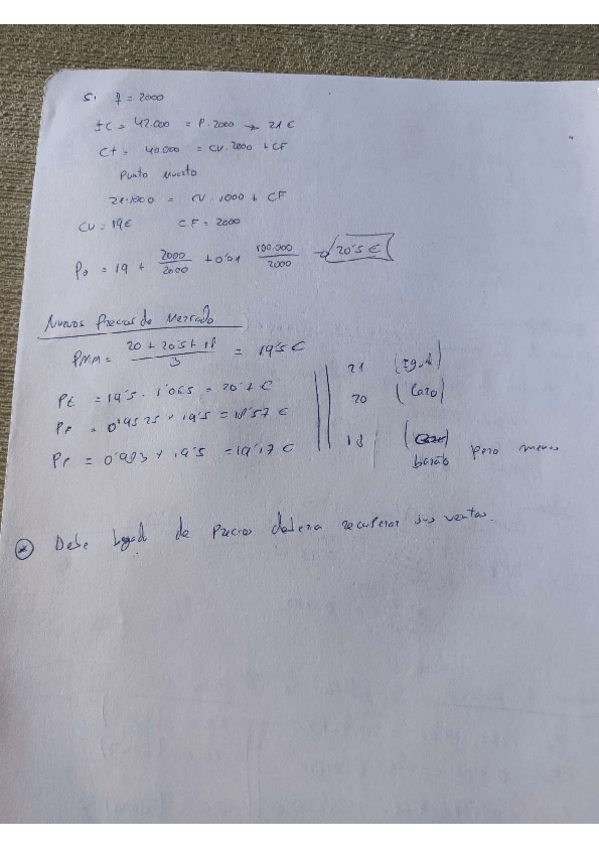 Si q = 2000
IC = 42.000 = P. 2000 → 21 €
CT = 40.000 = CV. 2000 + CF
Punto Muerto
21.1000 = CV. 1000 + CF
CV = 19€ CF = 2000
= 19 + 2000/2000 + 0'01 100.000/2000 → 20'5 €
Nuevos Precios de Mercado
PMM = 20 + 20'5 + 18 / 3 = 19'5 €
PE = 19'5 . 1'065 = 20'7 € 21 (Igual)
= 0'9525 x 19'5 = 18'57 € 20 (Caro)
= 0'983 x 19'5 = 19'17 € 18 barato pero menos
* Debe de Precios deberia recuperar sus ventas.